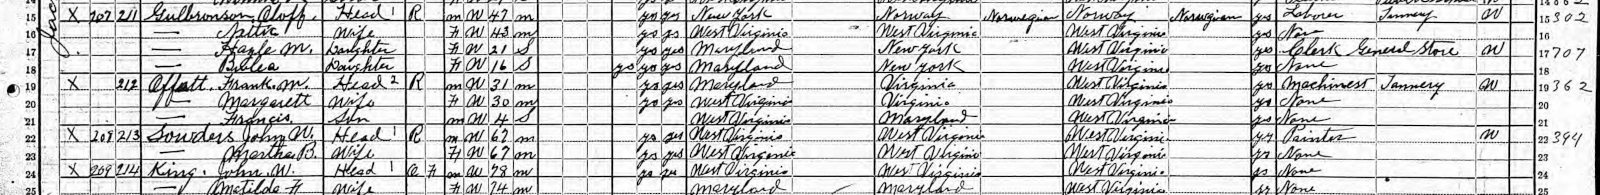 15 X 207 211 Gulbronson, Oloff. Head 1 R m W 47 m yes yes New York Norway Norwegian Norway Norwegian yes Laborer Tannery W 15 302
16 — Nettie Wife F W 43 m yes yes West Virginia West Virginia West Virginia yes None 16
17 — Hazle M. Daughter F W 21 S yes yes Maryland New York West Virginia yes Clerk General Store W 17 707
18 — Beulea Daughter F W 16 S yes yes yes Maryland New York West Virginia yes None 18
19 X 212 Offutt, Frank M. Head 2 R m W 31 m yes yes Maryland Virginia West Virginia yes Machinest Tannery W 19 362
20 — Margarett Wife F W 30 m yes yes West Virginia Virginia West Virginia yes None 20
21 — Francis Son m W 4 S West Virginia Maryland West Virginia yes None 21
22 X 208 213 Sowders John W. Head 1 R m W 67 m yes yes West Virginia West Virginia West Virginia yes Painter W 22 394
23 — Martha B. Wife F W 67 m yes yes West Virginia West Virginia West Virginia yes None 23
24 X 209 214 King, John W. Head 1 O F m W 78 m yes yes West Virginia West Virginia West Virginia yes None 24
25 — Matilda F Wife F W 74 m Maryland Maryland West Virginia yes None 25